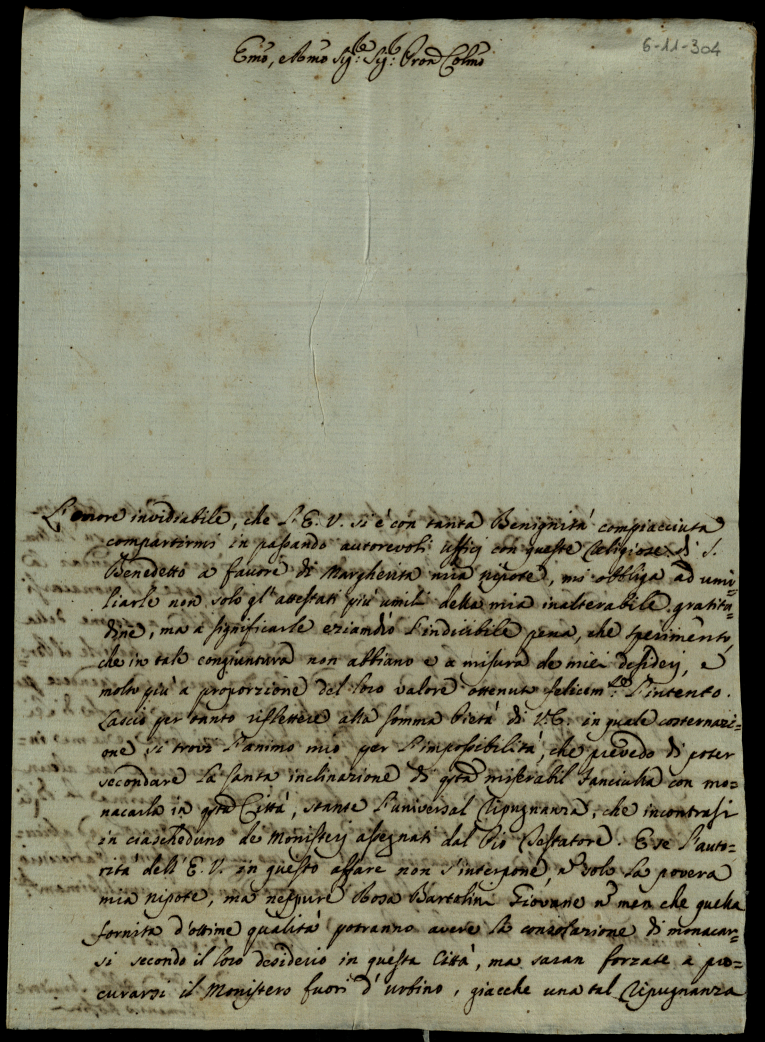 6-11-304
Emo, e Rmo Sig.re Sig.re Pron Colmo
L'onore invidiabile, che l'E. V. si è con tanta Benignità compiacciuta
compartirmi in passando autorevoli ufficj con queste Religiose di S.
Benedetto a favore di Margherita mia nipote, mi obbliga ad umi=
liarle non solo gl'attestati più umili della mia inalterabile gratitu=
dine, ma a significarle eziandio l'indicibile pena, che sperimento,
che in tale congiuntura non abbiano e a misura de miei desiderj, e
molto più a proporzione del loro valore ottenuto felicem.te l'intento.
Lascio per tanto riflettere alla somma Pietà di V.E. in quale costernazi=
one si trovi l'animo mio per l'impossibilità, che prevedo di poter
secondare la santa inclinazione di qsta miserabil Fanciulla con mo=
nacarla in qsta Città, stante l'universal Ripugnanza, che incontrasi
in ciascheduno de Monisterj assegnati dal Pio Testatore. E se l'auto=
rità dell'E. V. in questo affare non s'interpone, ñ solo la povera
mia nipote, ma neppure Rosa Bartolini Giovane ñ men che quella
fornita d'ottime qualità potranno avere la consolazione di monacar=
si secondo il loro desiderio in questa Città, ma saran forzate a pro=
curarsi il Monistero fuori d'Urbino, giacche una tal Ripugnanza